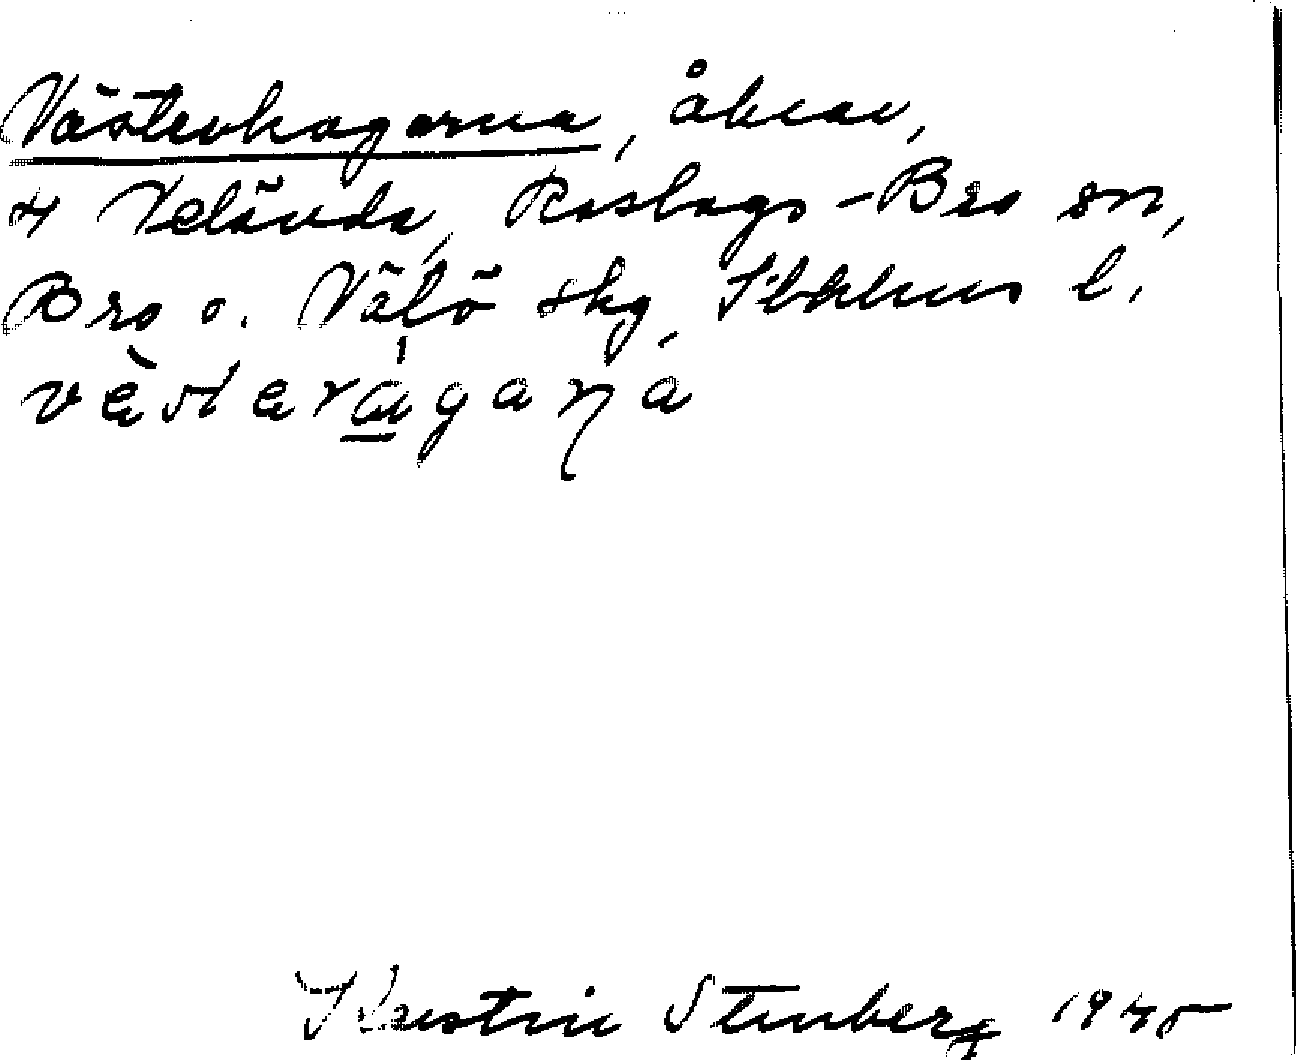 Västerhagarna, åkrar,
t Velända, Roslags-Bro sn,
Bro o. Vätö skg, Sthlms l.
vèsterágaṇa
Kerstin Stenberg 1945